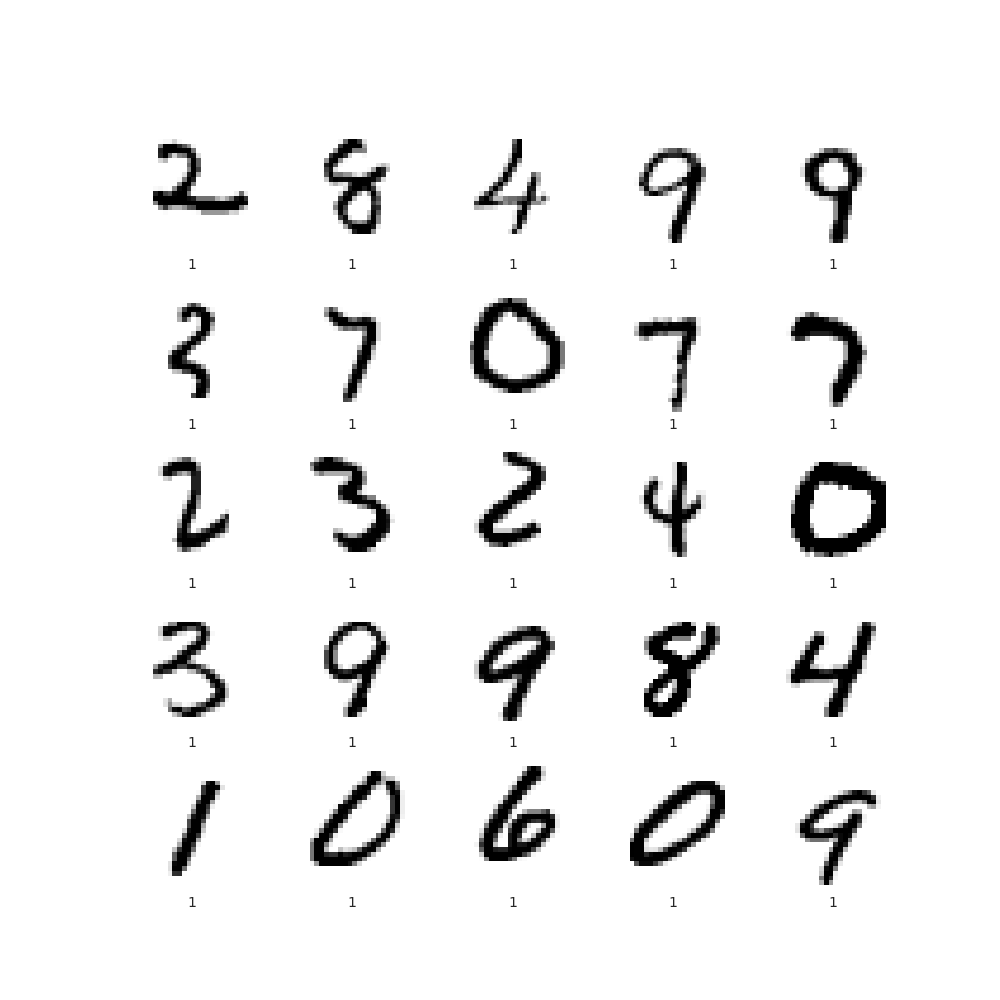 2 8 4 9 9
1 1 1 1 1
3 7 0 7 7
1 1 1 1 1
2 3 2 4 0
1 1 1 1 1
3 9 9 8 4
1 1 1 1 1
1 0 6 0 9
1 1 1 1 1